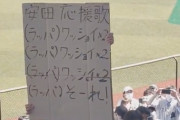 安田 応援歌
(ラッパ)ワッショイ×2
(ラッパ)ワッショイ×2
(ラッパ)ワッショイ×2
(ラッパ)そーれ!